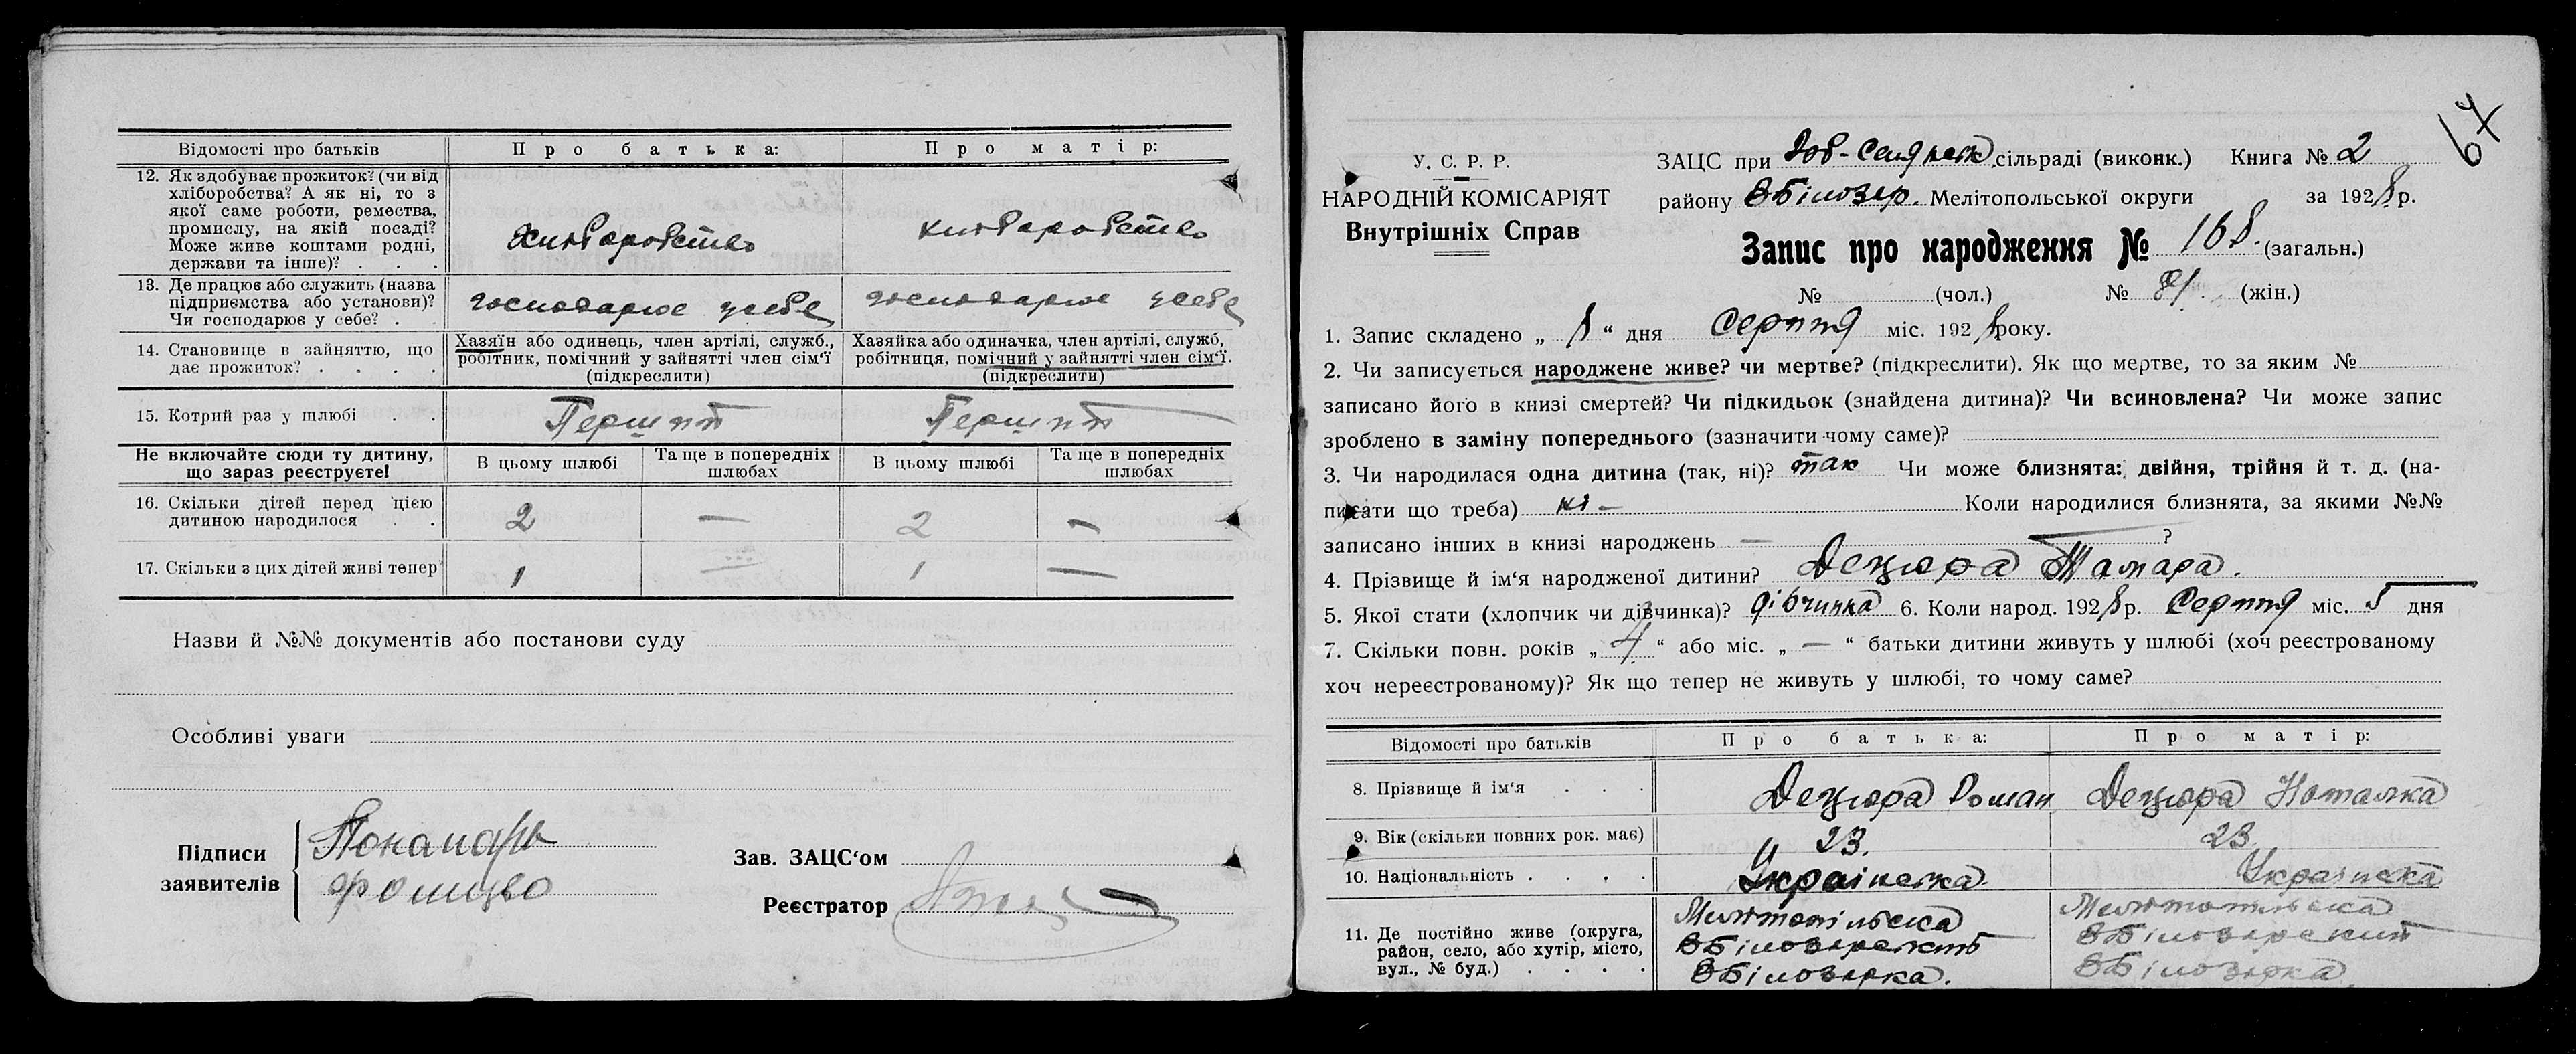 Відомості про батьків Про батька: Про матір:
12. Як здобуває прожиток? (чи від хліборобства? А як ні, то з якої саме роботи, ремества, промислу, на якій посаді? Може живе коштами родні, держави та інше)? . . . Хліборобство хліборобство
13. Де працює або служить (назва підприємства або установи)? Чи господарює у себе? . господарює у себе господарює у себе
14. Становище в зайняттю, що дає прожиток? . . . . Хазяїн або одинець, член артілі, служб., робітник, помічний у зайнятті член сім'ї (підкреслити) Хазяйка або одиначка, член артілі, служб, робітниця, помічний у зайнятті член сім'ї. (підкреслити)
15. Котрий раз у шлюбі . . Перший Перший
Не включайте сюди ту дитину, що зараз реєструєте! В цьому шлюбі Та ще в попередніх шлюбах В цьому шлюбі Та ще в попередніх шлюбах
16. Скільки дітей перед цією дитиною народилося . . 2 — 2 —
17. Скільки з цих дітей живі тепер 1 — 1 —
Назви й №№ документів або постанови суду
Особливі уваги
Підписи заявителів
Зав. ЗАЦС'ом
Реєстратор
64
У. С. Р. Р.
НАРОДНІЙ КОМІСАРІЯТ
Внутрішніх Справ
ЗАЦС при сільраді (виконк.) Книга № 2
району ВБілозер. Мелітопольської округи за 1928 р.
Запис про народження № 168. (загальн.)
№ (чол.) № 81. (жін.)
1. Запис складено „ 8 “ дня Серпня міс. 1928 року.
2. Чи записується народжене живе? чи мертве? (підкреслити). Як що мертве, то за яким №
записано його в книзі смертей? Чи підкидьок (знайдена дитина)? Чи всиновлена? Чи може запис
зроблено в заміну попереднього (зазначити чому саме)?
3. Чи народилася одна дитина (так, ні)? так Чи може близнята: двійня, трійня й т. д. (на-
писати що треба) ні — Коли народилися близнята, за якими №№
записано інших в книзі народжень — ?
4. Прізвище й ім'я народженої дитини? Децюра Тамара.
5. Якої стати (хлопчик чи дівчинка)? дівчинка 6. Коли народ. 1928 р. Серпня міс. 5 дня
7. Скільки повн. років „ 4 “ або міс. „ — “ батьки дитини живуть у шлюбі (хоч реєстрованому
хоч нереєстрованому)? Як що тепер не живуть у шлюбі, то чому саме?
Відомості про батьків Про батька: Про матір:
8. Прізвище й ім'я . . . Децюра Роман Децюра Наталка
9. Вік (скільки повних рок. має) 23. 23.
10. Національність . . . . Українська Українська
11. Де постійно живе (округа, район, село, або хутір, місто, вул., № буд.) . . . . Мелітопільська ВБілозерський ВБілозерка. Мелітопільська ВБілозерський ВБілозерка.